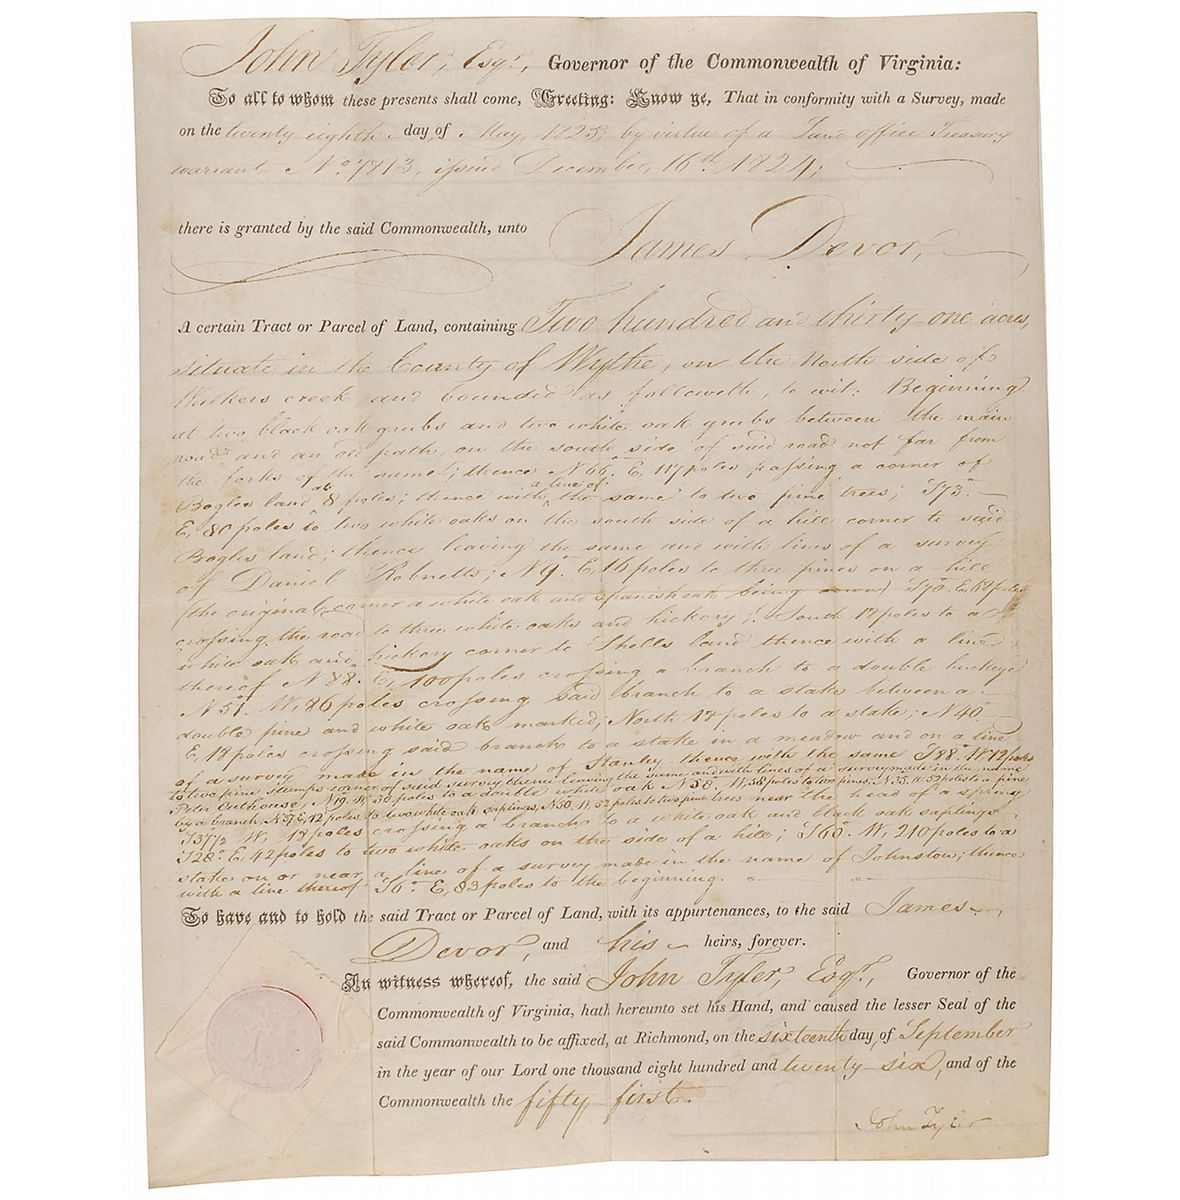 John Tyler, Esqr., Governor of the Commonwealth of Virginia:
To all to whom these presents shall come, Greeting: Know ye, That in conformity with a Survey, made
on the twenty eighth day of May, 1825, by virtue of a Land office Treasury
warrant No 7813, issued December, 16th 1824;
there is granted by the said Commonwealth, unto James Devor,
A certain Tract or Parcel of Land, containing Two hundred and thirty-one acres,
situate in the County of Wythe, on the North side of
Walkers creek and bounded as followeth, to wit: Beginning
at two black oak grubs and two white oak grubs between the main
road and an old path, on the south side of said road not far from
the forks of the same; thence N 66° E, 117 poles, passing a corner of
Bogles land at 8 poles; thence with a line of the same to two pine trees; S73°
E, 80 poles to two white oaks on the south side of a hill corner to said
Bogles land; thence leaving the same and with lines of a survey
of Daniel Robnetts; N 9° E, 16 poles to three pines on a hill
(the original corner a white oak and spanish oak being down) S70° E, 88 poles
crossing the road to three white oaks and hickory; South 18 poles to a
white oak and hickory corner to Shells land thence with a line
thereof N 88° E, 100 poles crossing a branch to a double buckeye
N 51° W, 86 poles crossing said branch to a stake between a
double pine and white oak marked; North 18 poles to a stake; N40°
E, 18 poles crossing said branch to a stake in a meadow and on a line
of a survey made in the name of Stanley thence with the same S88° W 12 poles
to two pine stumps corner of said survey thence leaving the same and with lines of a survey made in the name
Peter, N 19° W 30 poles to a double white oak N 58° W, 38 poles to two pines, N 35° W 52 poles to a pine
by a branch, N 37 E, 12 poles to two white oak saplings, N 50° W, 52 poles to two pine trees near the head of a spring
S37½ W, 18 poles crossing a branch to a white oak and black oak saplings
S28° E, 42 poles to two white oaks on the side of a hill; S60° W, 210 poles to a
stake on or near a line of a survey made in the name of Johnston; thence
with a line thereof S6° E, 83 poles to the beginning.
To have and to hold the said Tract or Parcel of Land, with its appurtenances, to the said James
Devor, and his heirs, forever.
In witness whereof, the said John Tyler, Esqr., Governor of the
Commonwealth of Virginia, hath hereunto set his Hand, and caused the lesser Seal of the
said Commonwealth to be affixed, at Richmond, on the sixteenth day of September
in the year of our Lord one thousand eight hundred and twenty-six, and of the
Commonwealth the fifty-first.
John Tyler